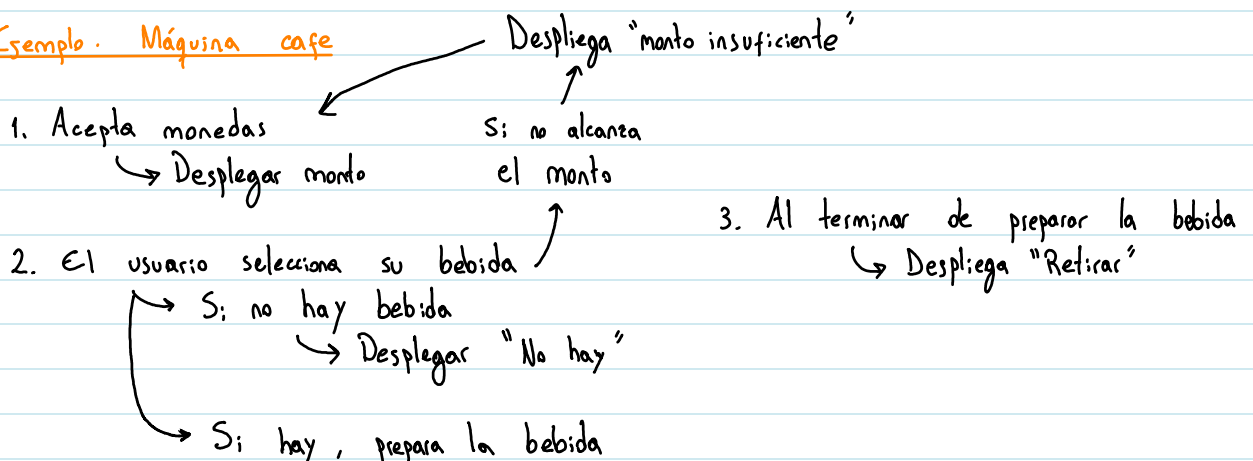 Ejemplo. Máquina cafe
Despliega "monto insuficiente"
1. Acepta monedas
Desplegar monto
Si no alcanza
el monto
2. El usuario selecciona su bebida
Si no hay bebida
Desplegar "No hay"
Si hay, prepara la bebida
3. Al terminar de preparar la bebida
Despliega "Retirar"